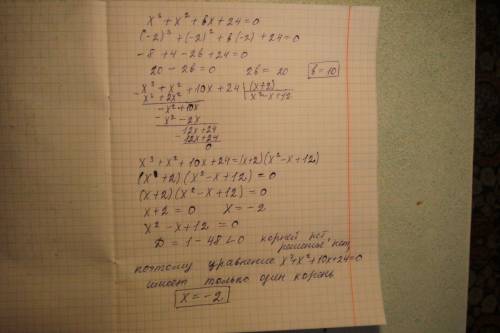 x³ + x² + bx + 24 = 0
(-2)³ + (-2)² + b(-2) + 24 = 0
-8 + 4 - 2b + 24 = 0
20 - 2b = 0 2b = 20 b = 10
x³ + x² + 10x + 24 (x+2)
x³ + 2x² x² - x + 12
-x² + 10x
-x² - 2x
12x + 24
12x + 24
0
x³ + x² + 10x + 24 = (x+2)(x² - x + 12)
(x + 2)(x² - x + 12) = 0
(x + 2)(x² - x + 12) = 0
x + 2 = 0 x = -2
x² - x + 12 = 0
D = 1 - 48 < 0 корней нет,
решенья нет,
поэтому уравнение x³ + x² + 10x + 24 = 0
имеет только один корень
x = -2